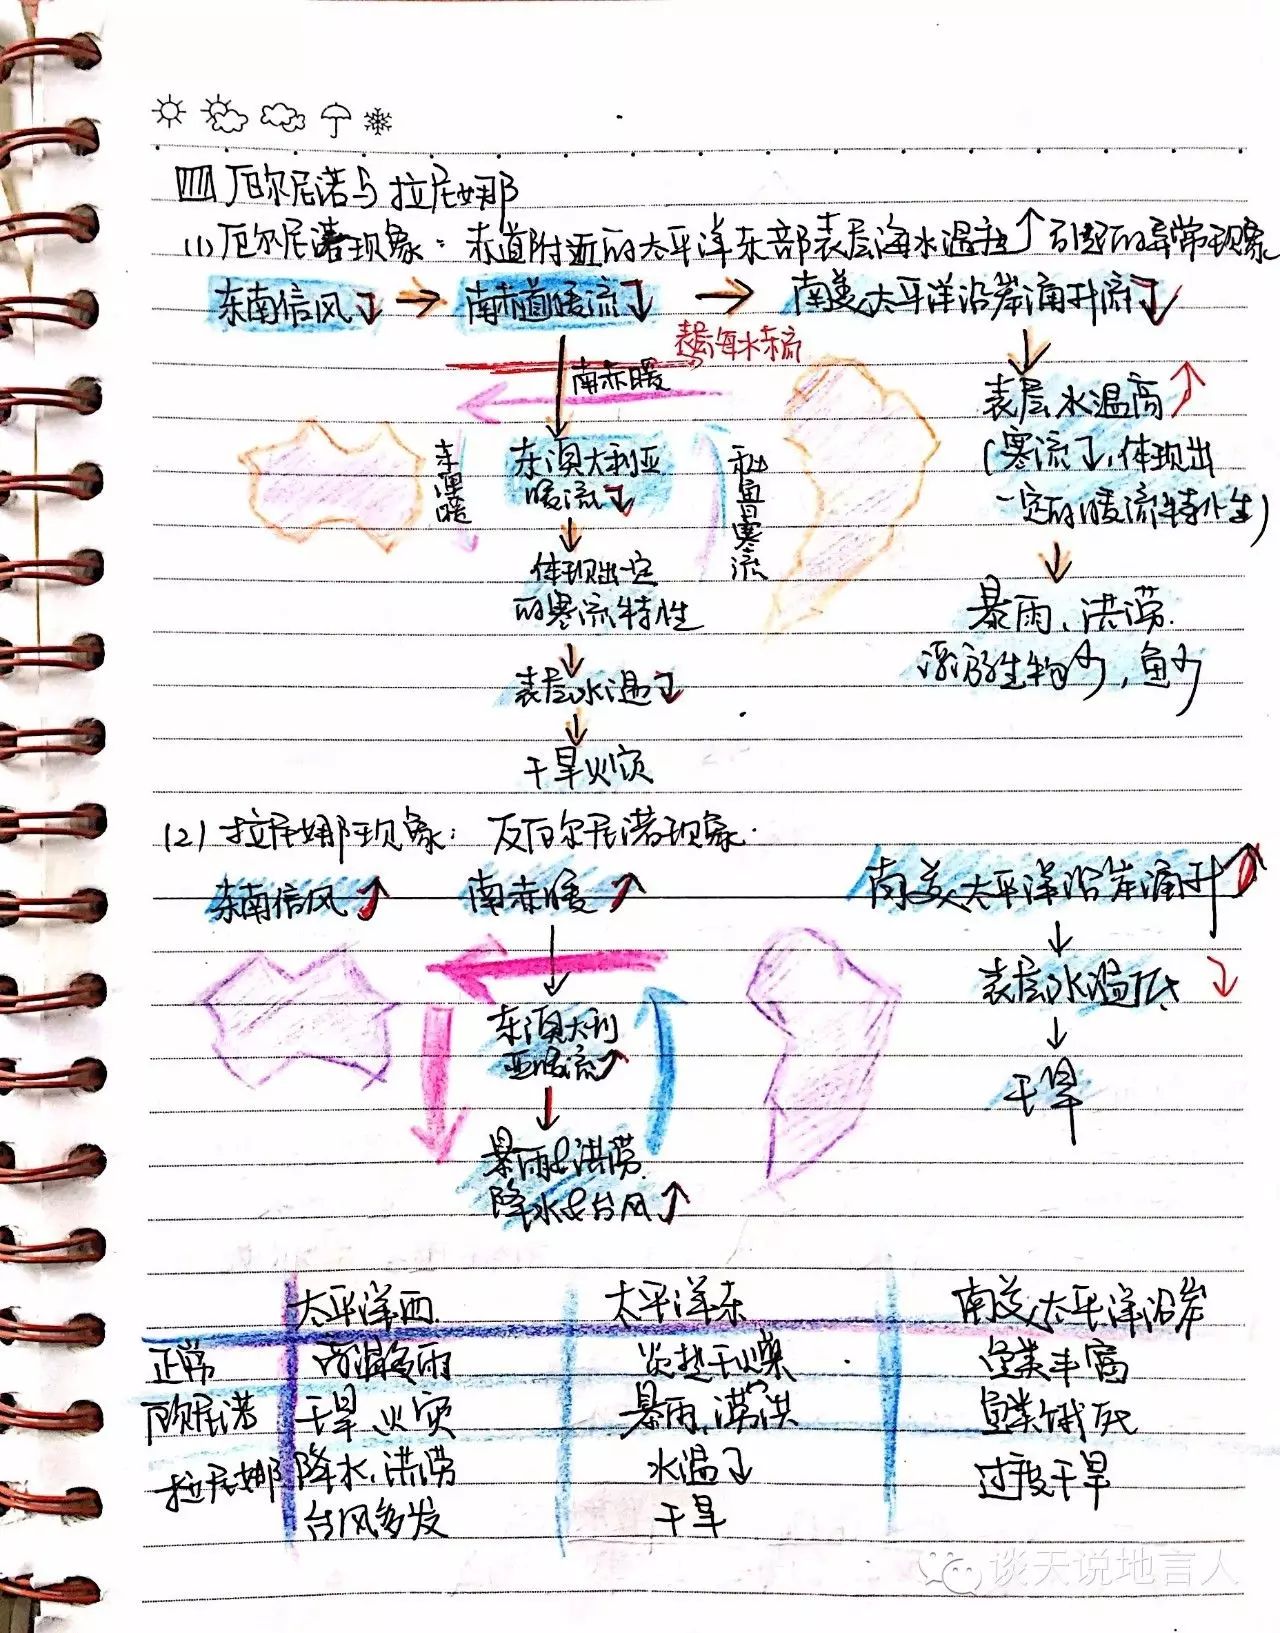 四 厄尔尼诺与拉尼娜
(1) 厄尔尼诺现象：赤道附近的太平洋东部表层海水温度↑引起的异常现象
东南信风↓ → 南赤道暖流↓ → 南美太平洋沿岸涌升流↓
表层海水东流
南赤暖
表层水温高↑
(寒流↓,体现出
一定的暖流特性)
东澳暖
东澳大利亚
暖流↓
秘鲁寒流
体现出一定
的寒流特性
暴雨、洪涝.
浮游生物少，鱼少
表层水温↓
干旱火灾
(2) 拉尼娜现象：反厄尔尼诺现象.
东南信风↑ 南赤暖↑ 南美太平洋沿岸涌升↑
表层水温低 ↓
东澳大利
亚暖流↑
干旱
暴雨&洪涝.
降水&台风↑
太平洋西. 太平洋东 南美太平洋沿岸
正常 高温多雨 炎热干燥 鱼类丰富
厄尔尼诺 干旱、火灾 暴雨、涝洪 鱼类饿死
拉尼娜 降水、洪涝 水温↓ 过度干旱
台风多发 干旱
谈天说地言人